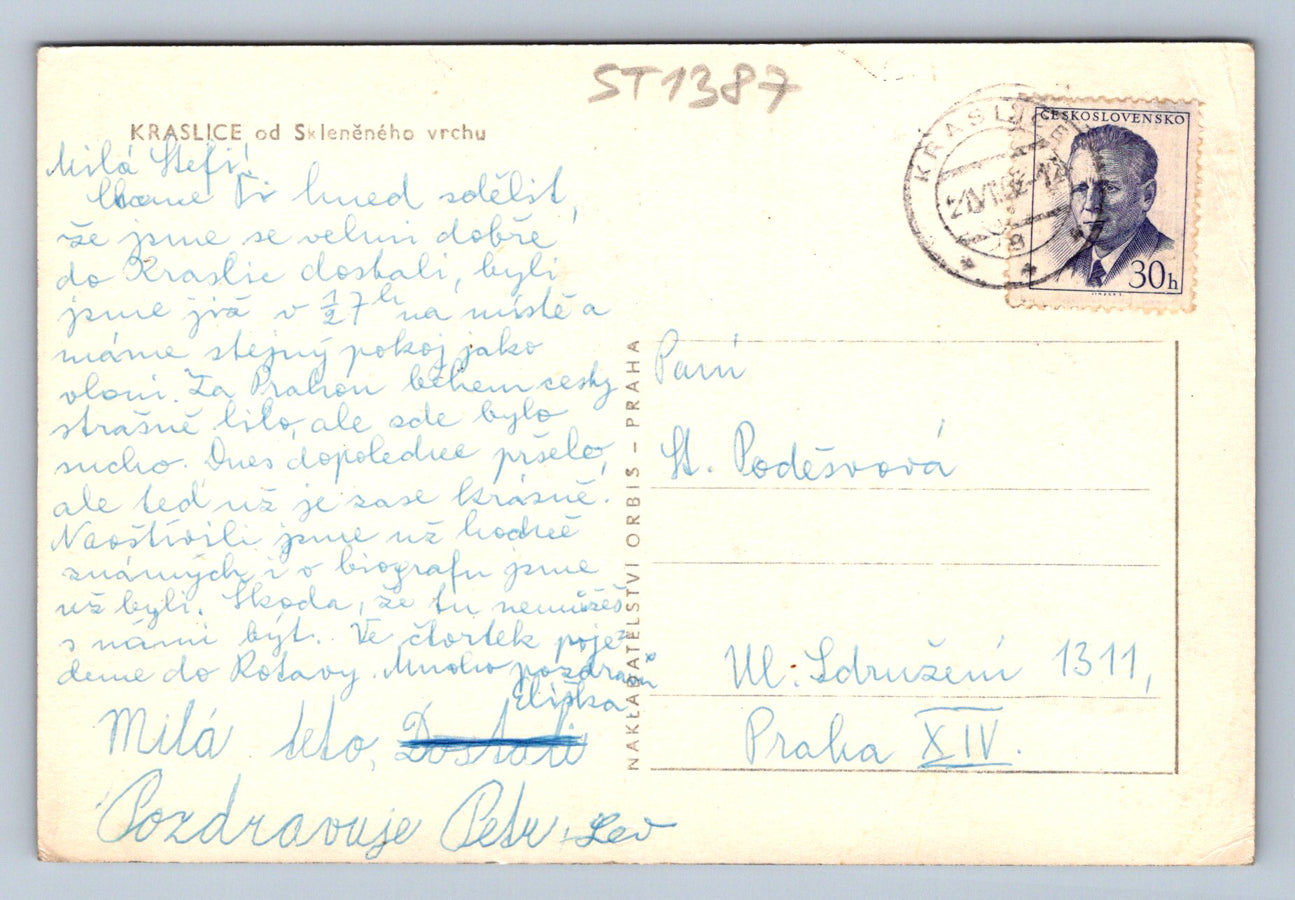 ST1387
KRASLICE od Skleněného vrchu
ČESKOSLOVENSKO
30h
KRASLICE
Milá Stefi!
Ti hned sdělit,
že jsme se velmi dobře
do Kraslic dostali, byli
jsme již v ½7 h na místě a
máme stejný pokoj jako
vloni. Za Prahou během cesty
strašně lilo, ale zde bylo
sucho. Dnes dopoledne pršelo,
ale teď už je zase krásně.
Navštívili jsme už hodně
známých i v biografu jsme
už byli. Škoda, že tu nemůžeš
s námi být. Ve čtvrtek poje-
deme do Rotavy. Mnoho pozdravů
Eliška
Milá teto,
Pozdravuje Petr
NAKLADATELSTVÍ ORBIS – PRAHA
Paní
St. Poděsvová
Ul. Sdružení 1311,
Praha XIV.